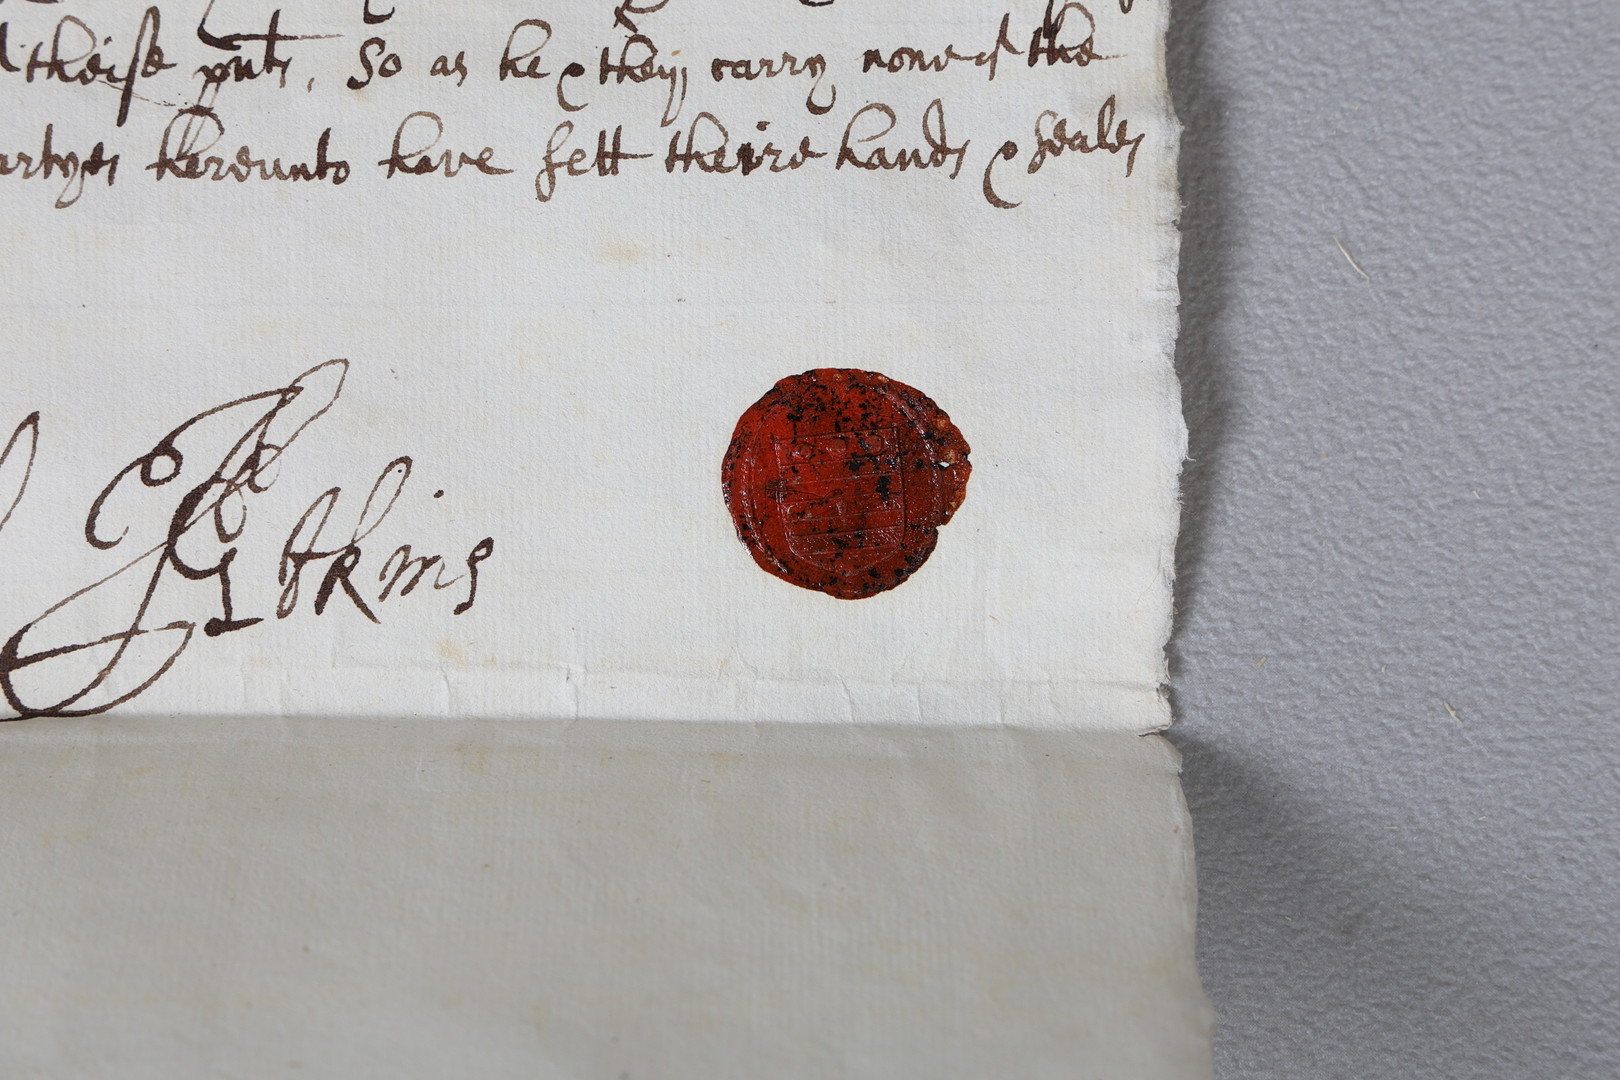 theise pnts, So as he & they carry none of the
artyes hereunto have sett theire hands & seales
Atkins